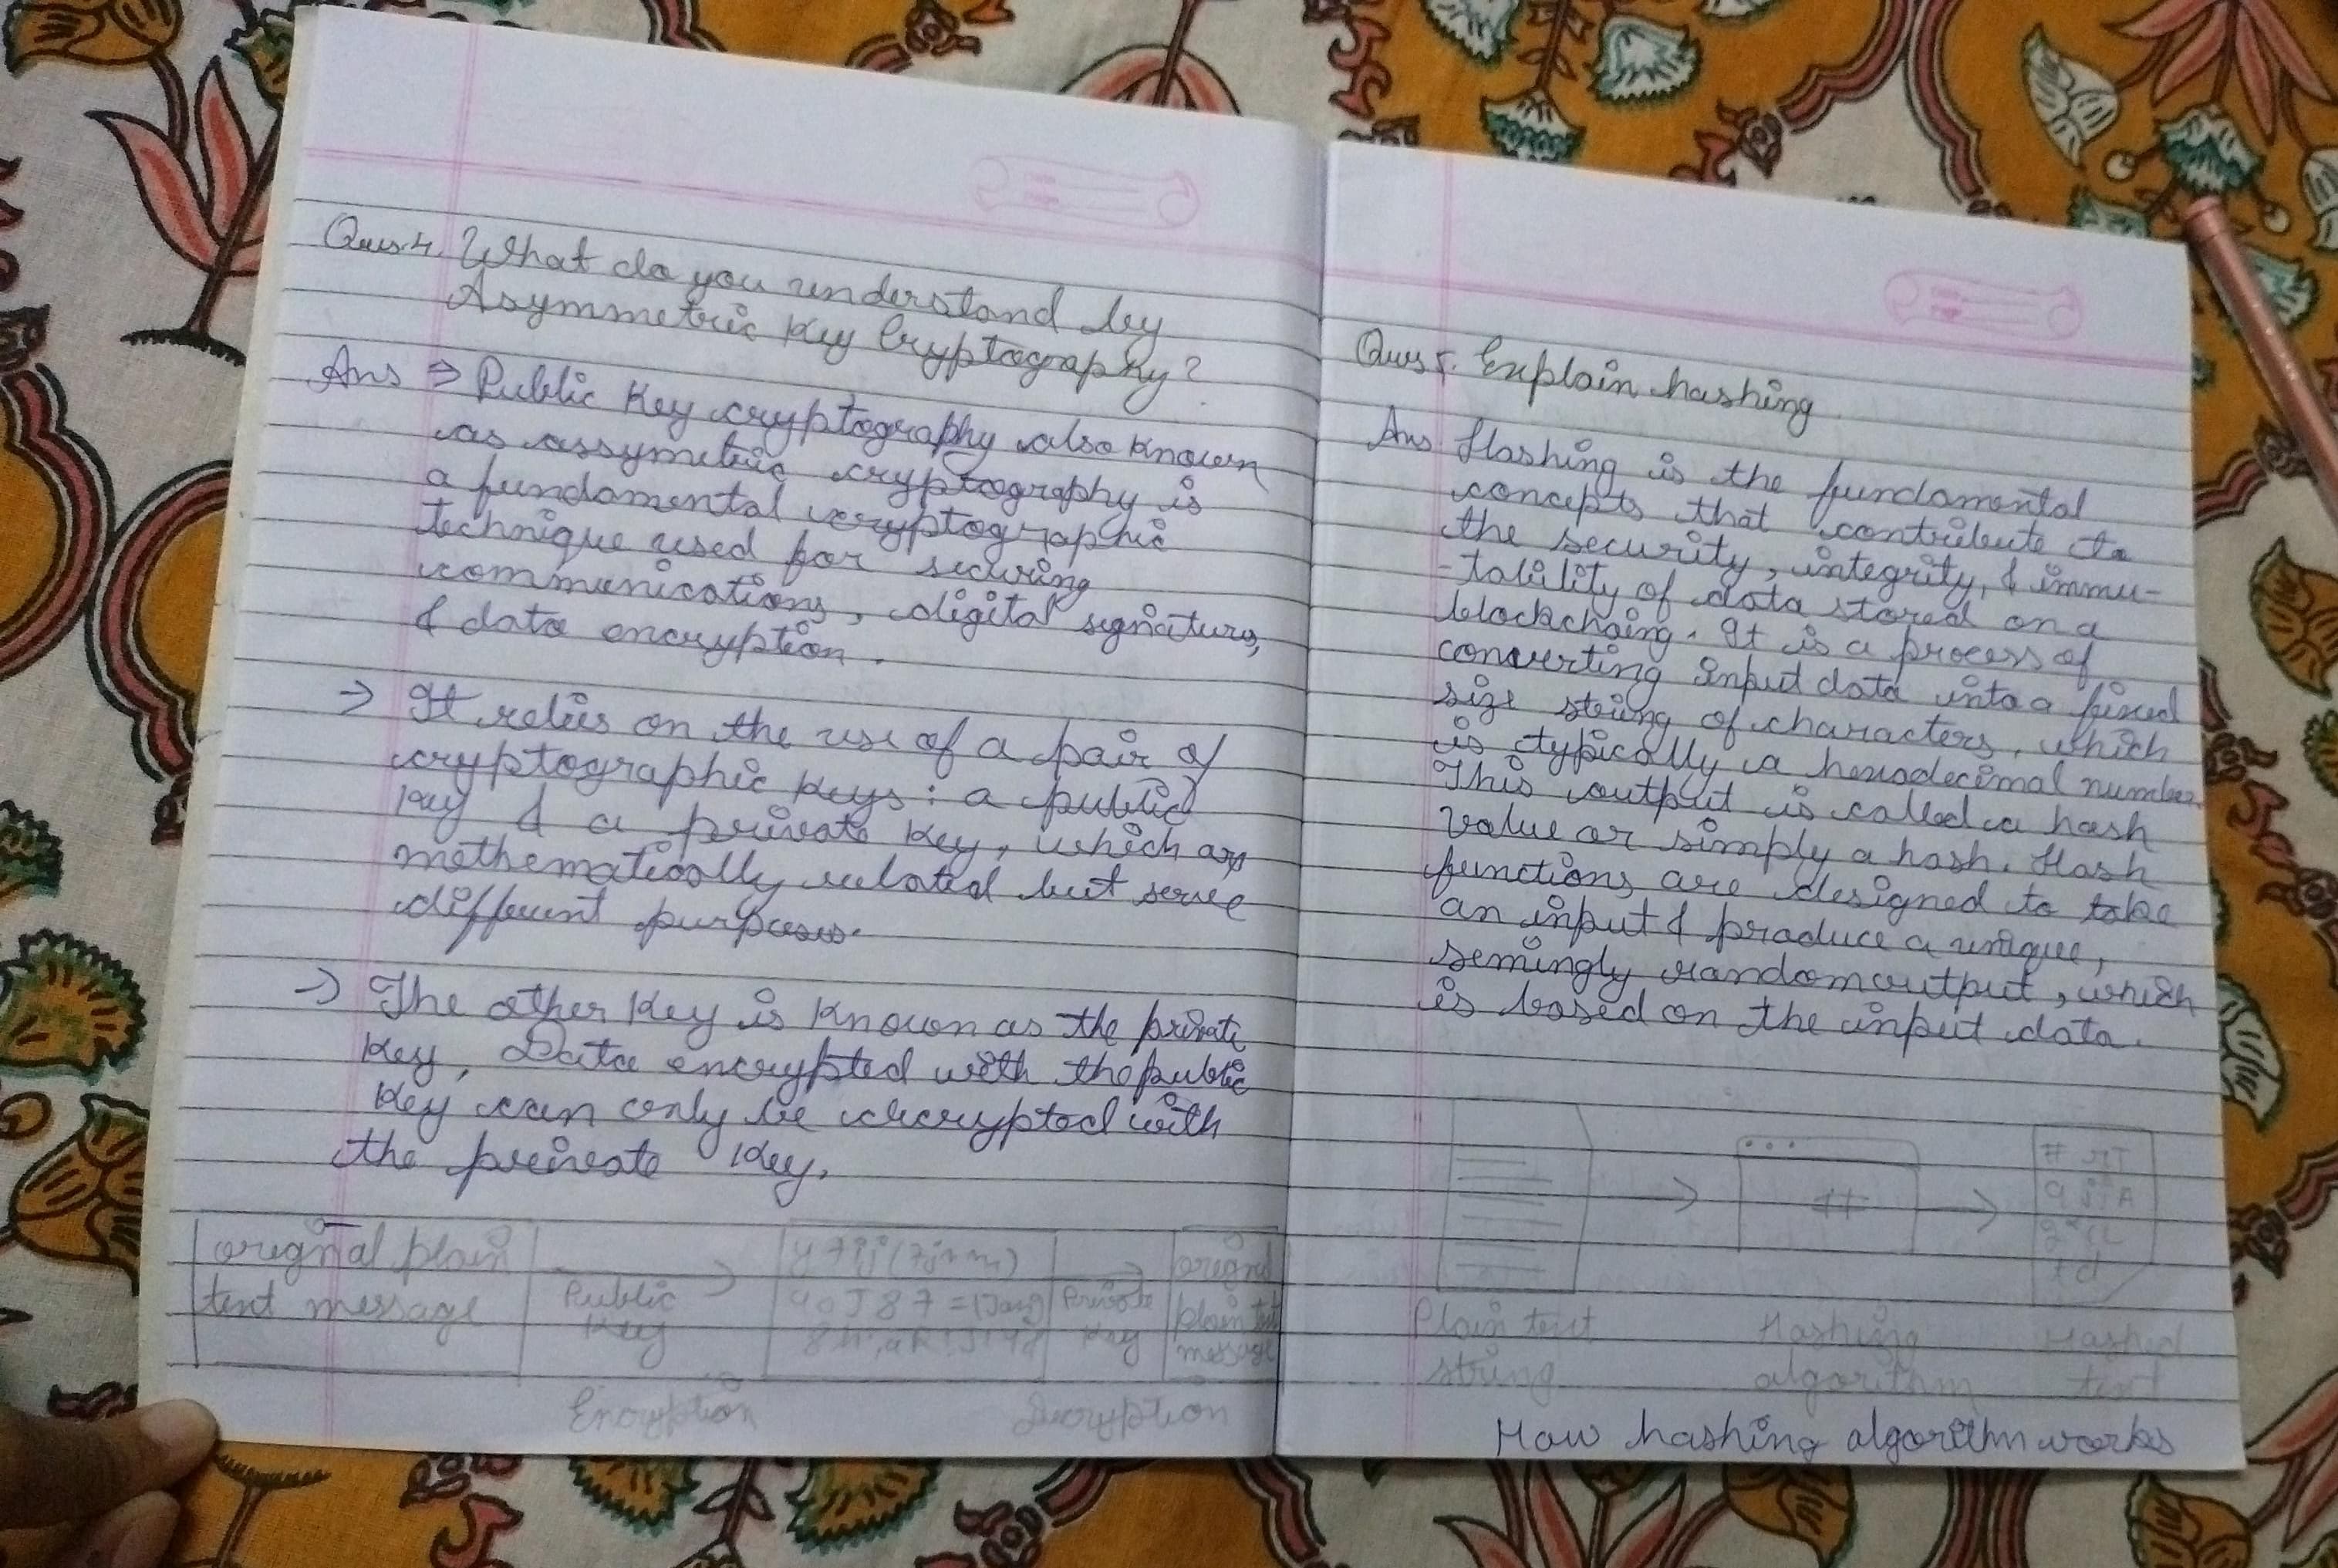 Ques 4. What do you understand by
Asymmetric Key Cryptography?
Ans ⇒ Public Key cryptography also known
as assymetric cryptography is
a fundamental cryptographic
technique used for securing
communications, digital signatures,
& data encryption.
→ It relies on the use of a pair of
cryptographic keys: a public
key & a private key, which are
mathematically related but serve
different purposes.
→ The other key is known as the private
key, Data encrypted with the public
key can only be decrypted with
the private key.
original plain
text message
Public
Key
Private
Key
original
plain text
message
Encryption
Decryption
Ques 5. Explain hashing
Ans Hashing is the fundamental
concepts that contribute to
the security, integrity, & immu-
-tability of data stored on a
blockchaing. It is a process of
converting input data into a fixed
size string of characters, which
is typically a hexadecimal number.
This output is called a hash
value or simply a hash. Hash
functions are designed to take
an input & produce a unique,
semingly random output, which
is based on the input data.
#
Plain text
string
Hashing
algorithm
Hashed
text
How hashing algorithm works